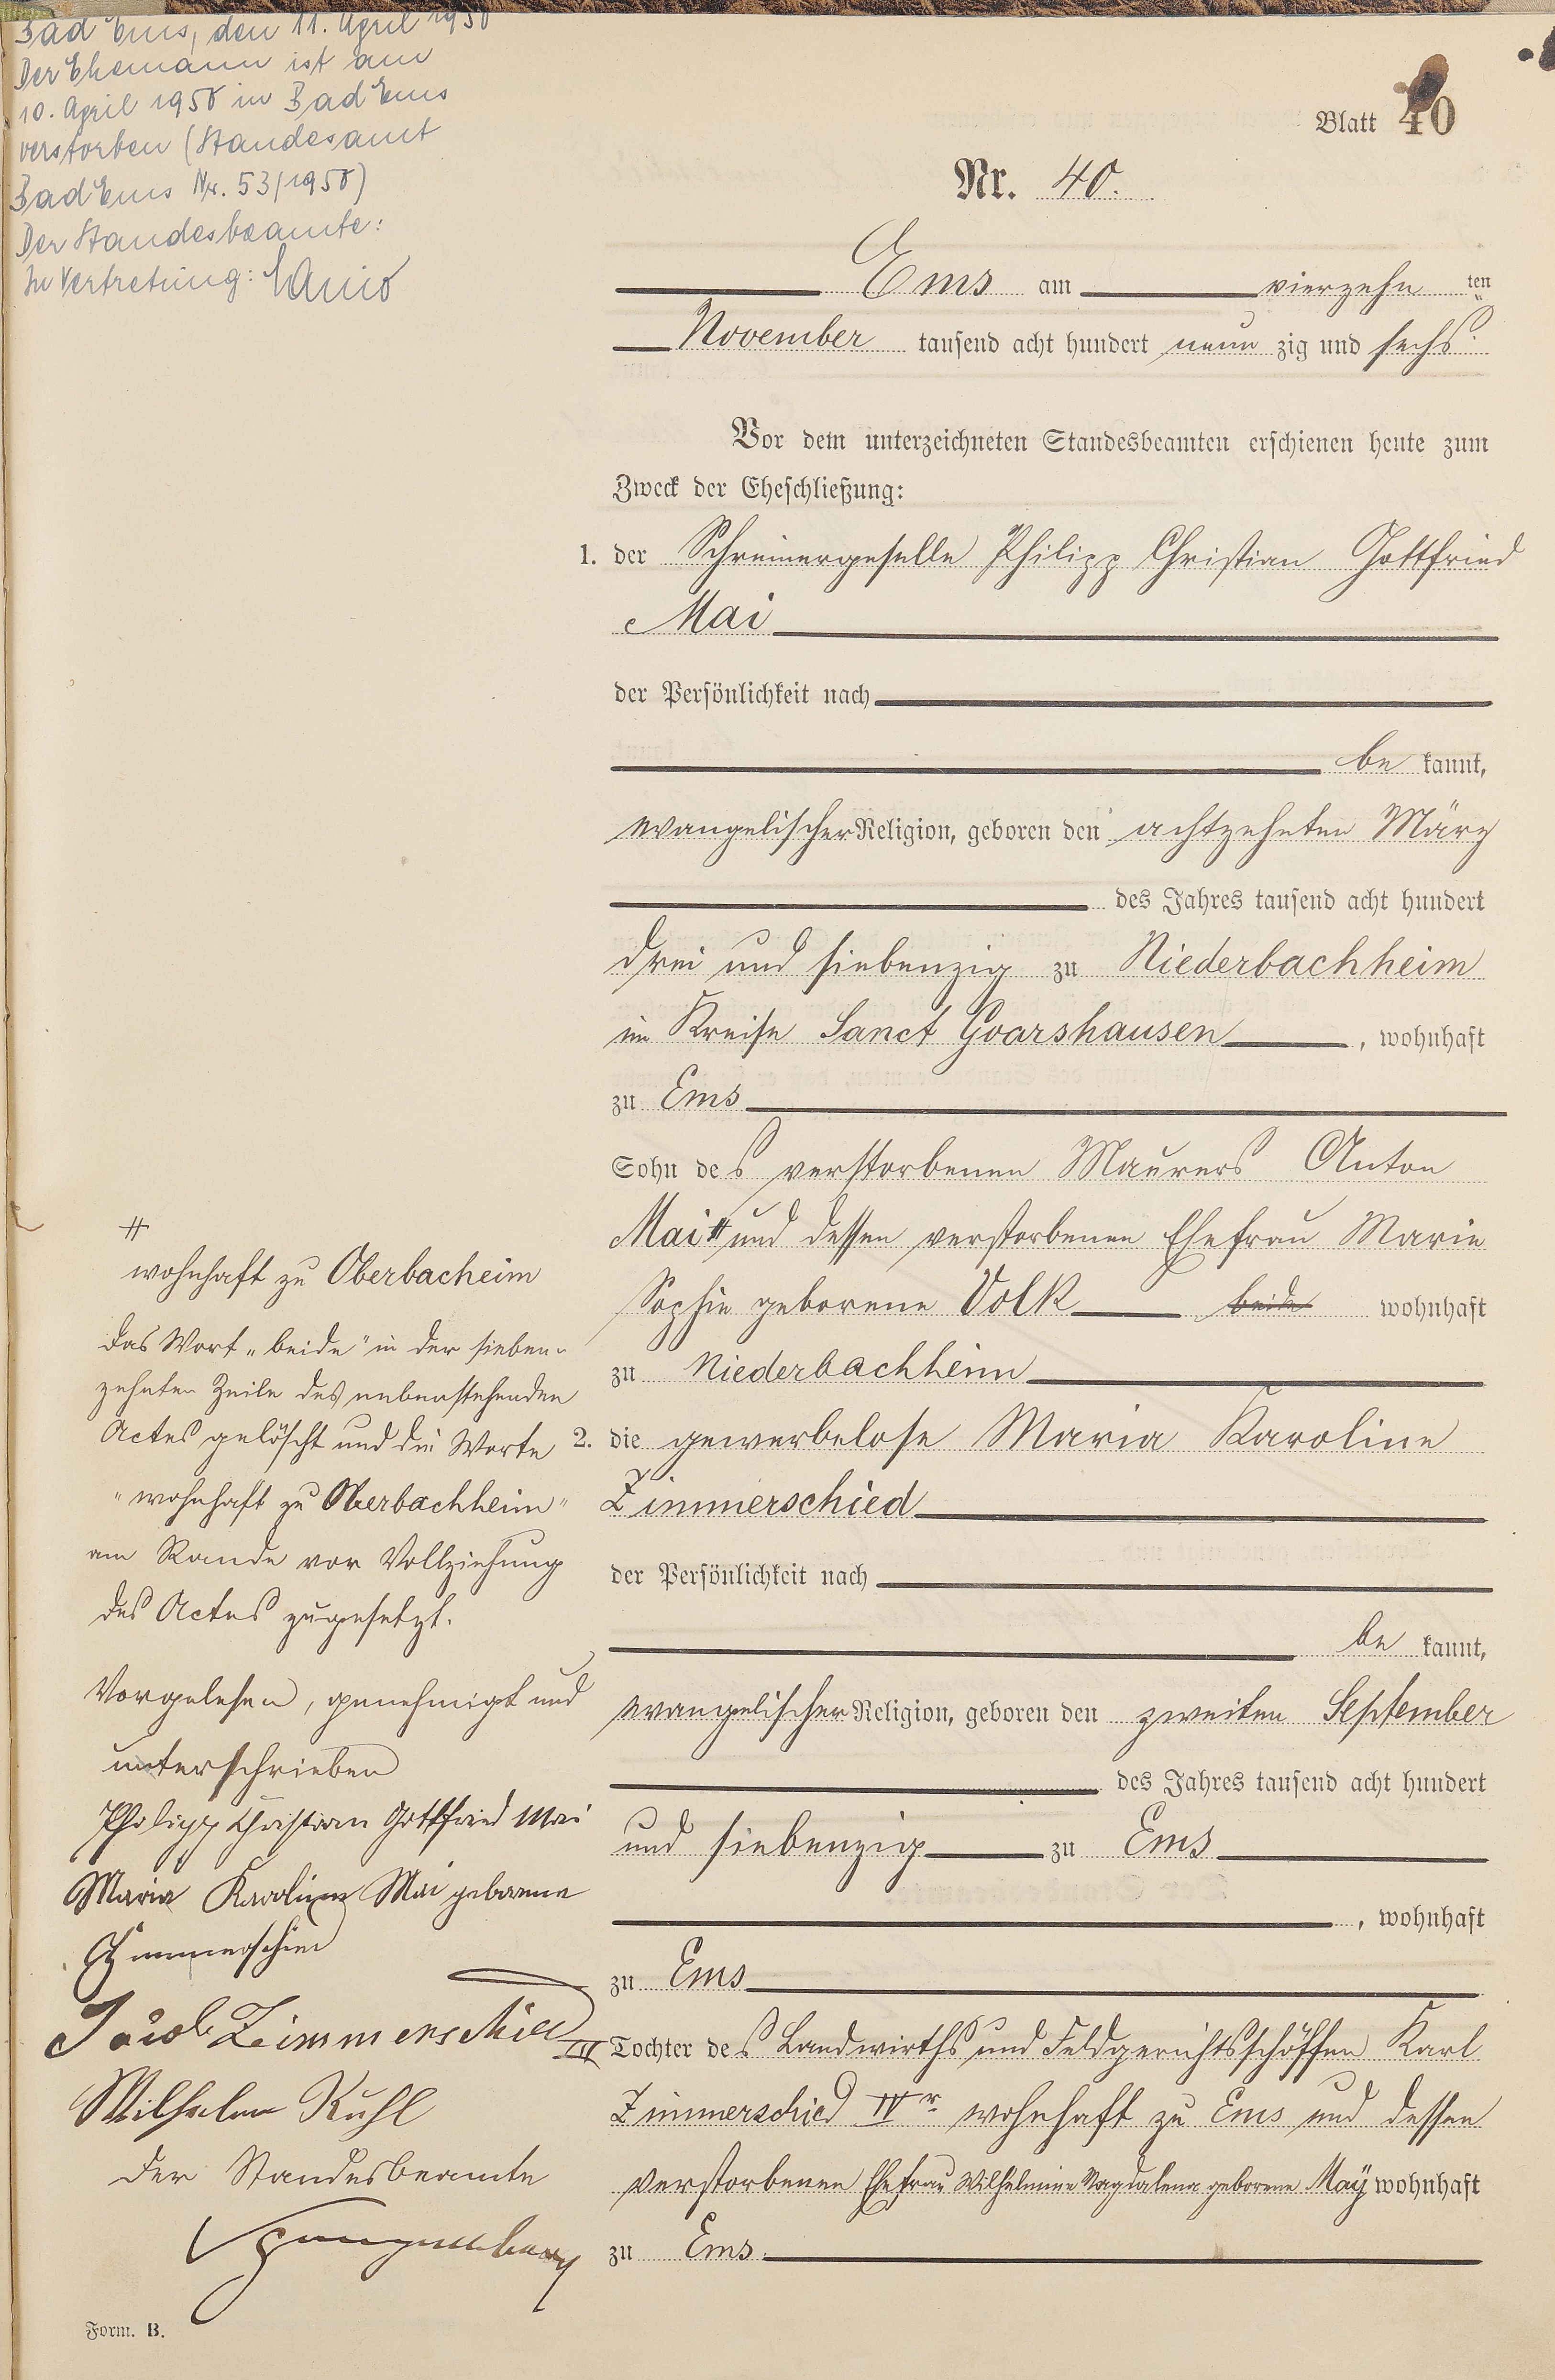 Bad Ems, den 11. April 1958
Der Ehemann ist am
10. April 1958 in Bad Ems
verstorben (Standesamt
Bad Ems Nr. 53/1958)
Der Standesbeamte:
In Vertretung:
Blatt 40
Nr. 40.
Ems am vierzehn ten
November tausend acht hundert neun zig und sechs.
Vor dem unterzeichneten Standesbeamten erschienen heute zum
Zweck der Eheschließung:
1. der Schreinergeselle Philipp Christian Gottfried
Mai
der Persönlichkeit nach
be kannt,
evangelischer Religion, geboren den achtzehnten März
des Jahres tausend acht hundert
drei und siebenzig zu Niederbachheim
im Kreise Sanct Goarshausen, wohnhaft
zu Ems
Sohn des verstorbenen Maurers Anton
Mai # und dessen verstorbenen Ehefrau Marie
Sophie geborene Volk beide wohnhaft
zu Niederbachheim
2. die gewerbelose Maria Karoline
Zimmerschied
der Persönlichkeit nach
be kannt,
evangelischer Religion, geboren den zweiten September
des Jahres tausend acht hundert
und siebenzig zu Ems
, wohnhaft
zu Ems
Tochter des Landwirths und Feldgerichtsschöffen Karl
Zimmerschied IVr wohnhaft zu Ems und dessen
verstorbenen Ehefrau Wilhelmine Magdalena geborene Maÿ wohnhaft
zu Ems.
#
wohnhaft zu Oberbacheim
das Wort "beide" in der sieben-
zehnten Zeile des nebenstehenden
Actes gelöscht und die Worte
"wohnhaft zu Oberbachheim"
am Rande vor Vollziehung
des Actes zugesetzt.
Vorgelesen, genehmigt und
unterschrieben
Philipp Christian Gottfried Mai
Maria Karoline Mai geborene
Zimmerschied
Jacob Zimmerschied IV
Wilhelm Kuhl
Der Standesbeamte
Spangenberg
Form. B.